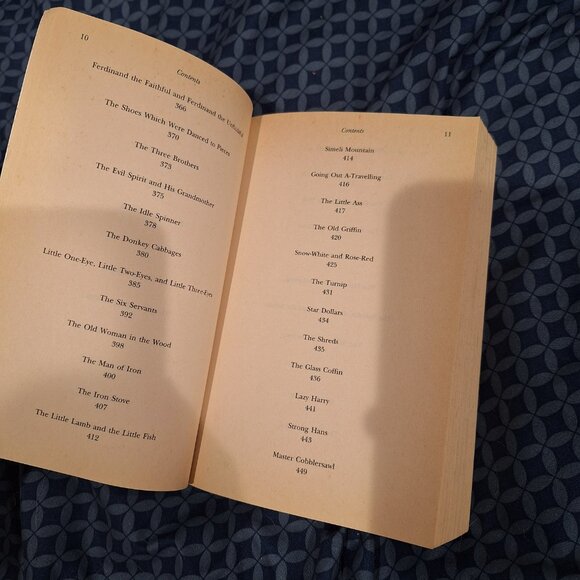 10
Contents
Ferdinand the Faithful and Ferdinand the Unfaithful
366
The Shoes Which Were Danced to Pieces
370
The Three Brothers
373
The Evil Spirit and His Grandmother
375
The Idle Spinner
378
The Donkey Cabbages
380
Little One-Eye, Little Two-Eyes, and Little Three-Eyes
385
The Six Servants
392
The Old Woman in the Wood
398
The Man of Iron
400
The Iron Stove
407
The Little Lamb and the Little Fish
412
Contents
11
Simeli Mountain
414
Going Out A-Travelling
416
The Little Ass
417
The Old Griffin
420
Snow-White and Rose-Red
425
The Turnip
431
Star Dollars
434
The Shreds
435
The Glass Coffin
436
Lazy Harry
441
Strong Hans
443
Master Cobblersawl
449